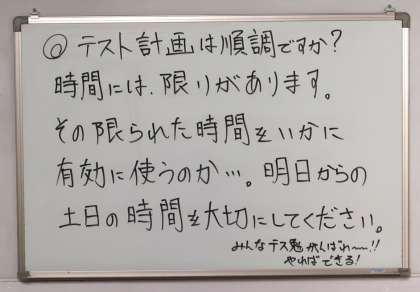 ◎ テスト計画は順調ですか?
時間には、限りがあります。
その限られた時間をいかに
有効に使うのか…。明日からの
土日の時間を大切にしてください。
みんなテス勉がんばれ〜!!
やればできる!